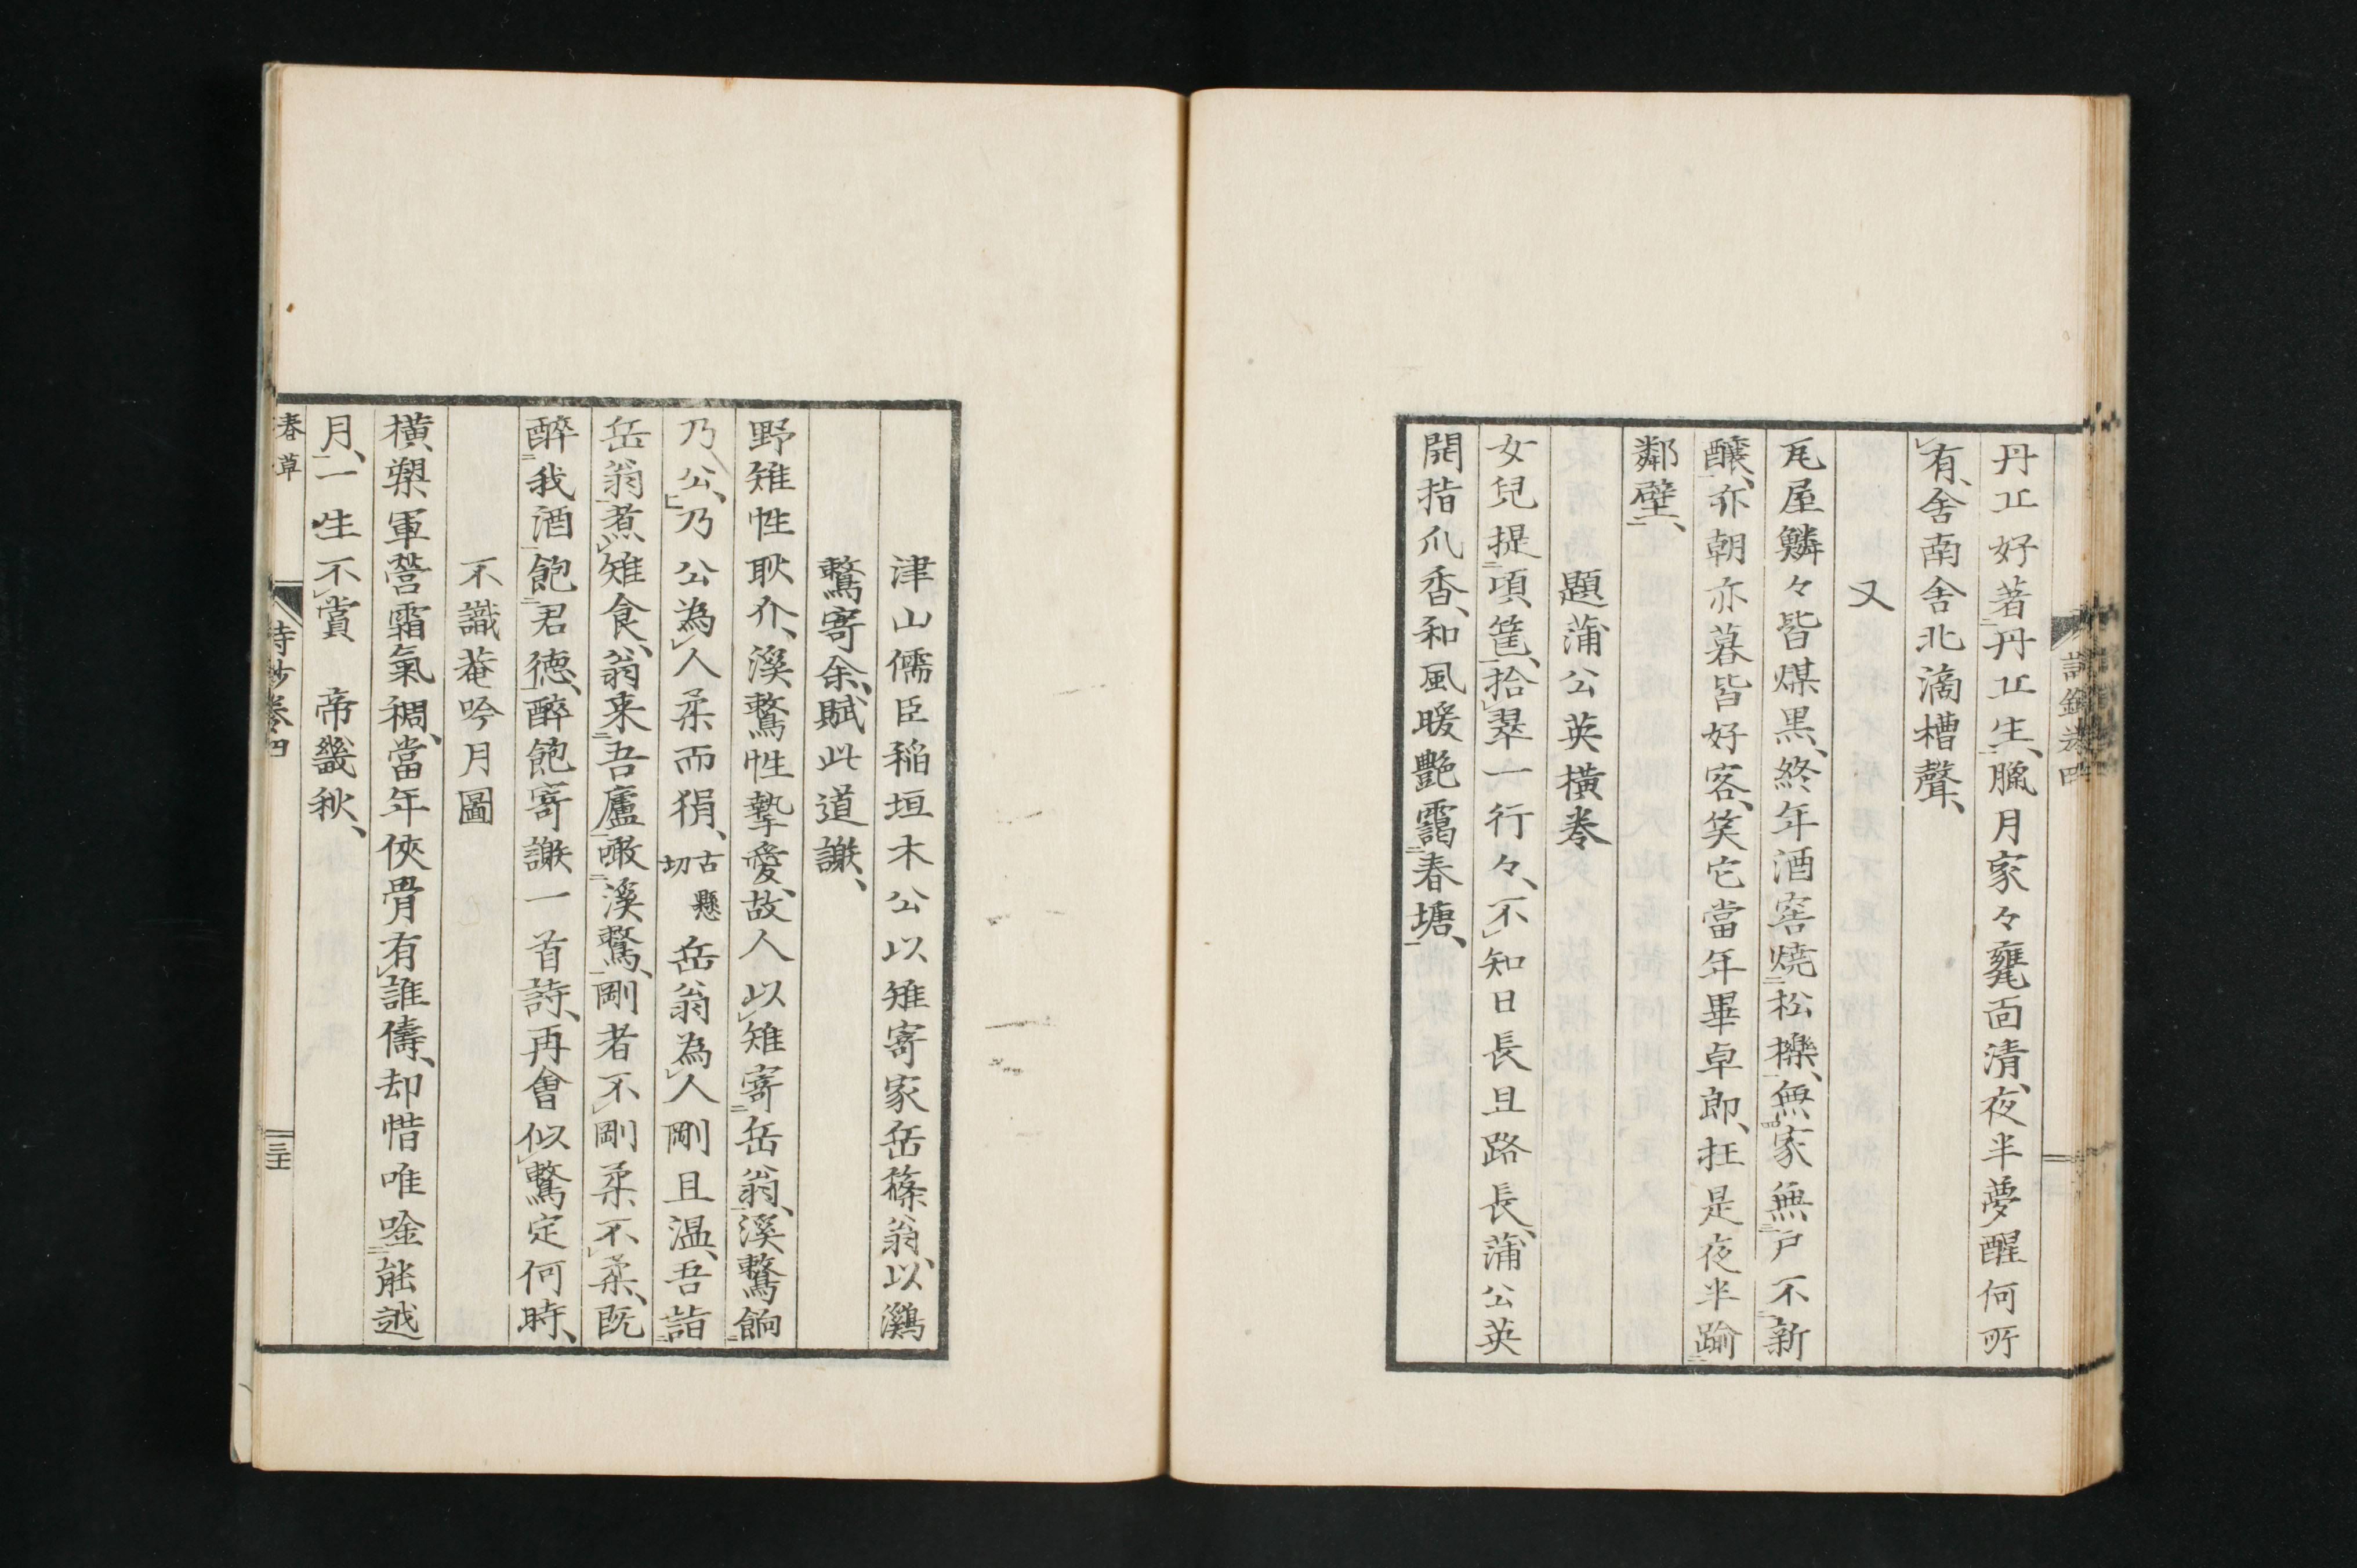 丹丘好著丹丘生、臘月家々甕面清、夜半夢醒何所
有、舍南舍北滴槽聲、
又
瓦屋鱗々皆煤黒、終年酒窖燒松櫟、無家無戸不新
釀、亦朝亦暮皆好客、笑它當年畢卓郎、抂是夜半踰
鄰壁、
題蒲公英橫巻
女兒提頃筐、拾翠一行々、不知日長且路長、蒲公英
開指爪香、和風暖艷靄春塘、
詩鈔巻四
津山儒臣稲垣木公以雉寄家岳篠翁、以鸂
鷘寄余、賦此道謝、
野雉性耿介、溪鷘性摯愛、故人以雉寄岳翁、溪鷘餉
乃公、乃公為人柔而狷、古懸切岳翁為人剛且温、吾詣
岳翁煮雉食、翁来吾廬噉溪鷘、剛者不剛柔不柔、既
醉我酒飽君徳、醉飽寄謝一首詩、再會似鷘定何時、
不識菴吟月圖
橫槊軍營霜氣稠、當年俠骨有誰儔、却惜唯唫能越
月、一生不賞 帝畿秋、
春草
詩鈔巻四